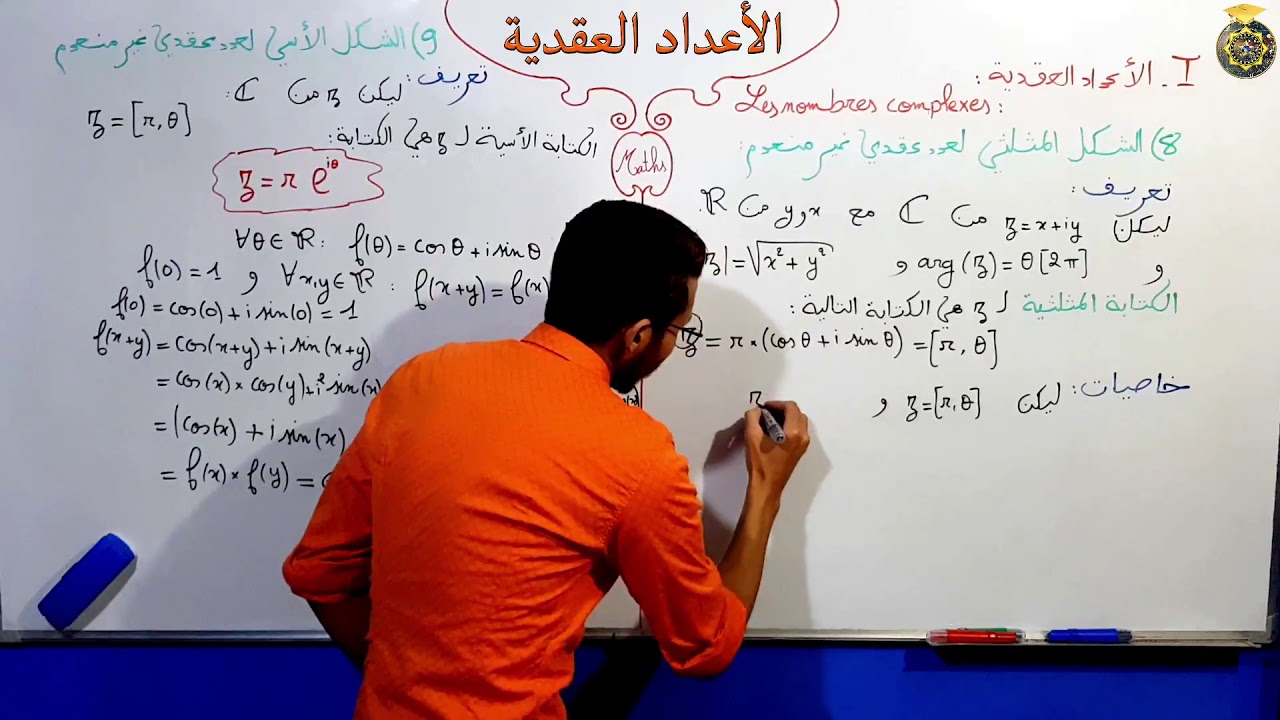 الأعداد العقدية
I. الأعداد العقدية:
Les nombres complexes:
8) الشكل المثلثي لعدد عقدي غير منعدم:
تعريف:
ليكن z=x+iy من ℂ مع x و y من ℝ.
و arg(z)=θ[2π] و z|=√x²+y²
الكتابة المثلثية لـ z هي الكتابة التالية:
z=r×(cosθ+i sinθ)=[r,θ]
خاصيات: ليكن z=[r,θ] و
Maths
9) الشكل الأسي لعدد عقدي غير منعدم
تعريف: ليكن z من ℂ:
z=[r,θ]
الكتابة الأسية لـ z هي الكتابة:
z=r e^{iθ}
∀θ∈ℝ: f(θ)=cosθ+i sinθ
f(0)=1 و ∀x,y∈ℝ: f(x+y)=f(x)
f(0)=cos(0)+i sin(0)=1
f(x+y)=cos(x+y)+i sin(x+y)
=cos(x)×cos(y)+i² sin(x)
=(cos(x)+i sin(x)
=f(x)×f(y)=